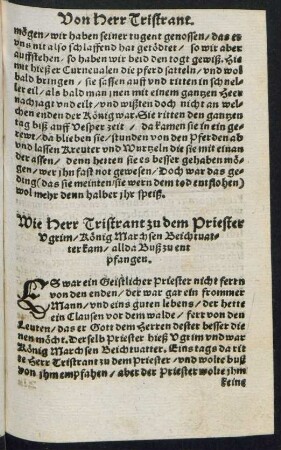 Von Herr Tristrant.
mögen/ wir haben seiner tugent genossen/ das es
uns nit also schlaffend hat getödtet/ so wir aber
auffstehen/ so haben wir beid den togt gewiß. Hie
mit hieß er Curneualen die pferd satteln/ vnd wol
bald bringen/ sie sassen auff vnd ritten in schnel-
ler eil/ als bald man jnen mit einem gantzen Heer
nachjagt vnd eilt/ vnd wißten doch nicht an wel-
chen enden der König war. Sie ritten den gantzen
tag biß auff Vesper zeit/ da kamen sie in ein ge-
rewt/ da blieben sie/ stunden von den Pferden ab
vnd lassen Kreuter vnd Wurtzeln die sie mit einan
der assen/ denn hetten sie es besser gehaben mö-
gen/ wer jhn fast not gewesen/ Doch war das ge-
ding (das sie meinten/ sie wern dem tod entflohen)
wol mehr denn halber jhr speiß.
Wie Herr Tristrant zu dem Priester
Vgrim/ König Marchsen Beichtuat-
ter kam/ allda Buß zu ent
pfangen.
ES war ein Geistlicher Priester nicht fern
von den enden/ der war gar ein frommer
Mann/ vnd eins guten lebens/ der hette
ein Clausen vor dem walde/ fert von den
Leuten/ das er Gott dem Herren dester besser die
nen möcht. Derselb Priester hieß Vgrim vnd war
König Marchsen Beichtuatter. Eins tags da rit
te Herr Tristrant zu dem Priester/ vnd wolte buß
von jhm empfahen/ aber der Priester wolte jhm
keine